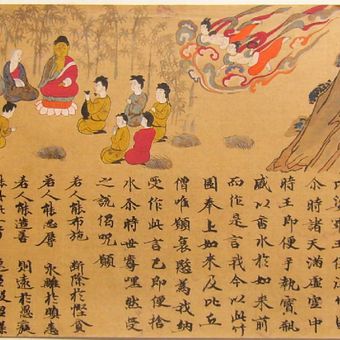 尒時諸天滿虛空中
時王即便手執寶瓶
盛以香水於如來前
而作是言我今以此竹
園奉上如來及比丘
僧唯願哀愍為我納
受作此言已即便捨
水尒時世尊嘿然受
之說偈呪願
若人能布施 斷除於慳貪
若人能忍辱 永離於瞋恚
若人能造善 則遠於愚癡